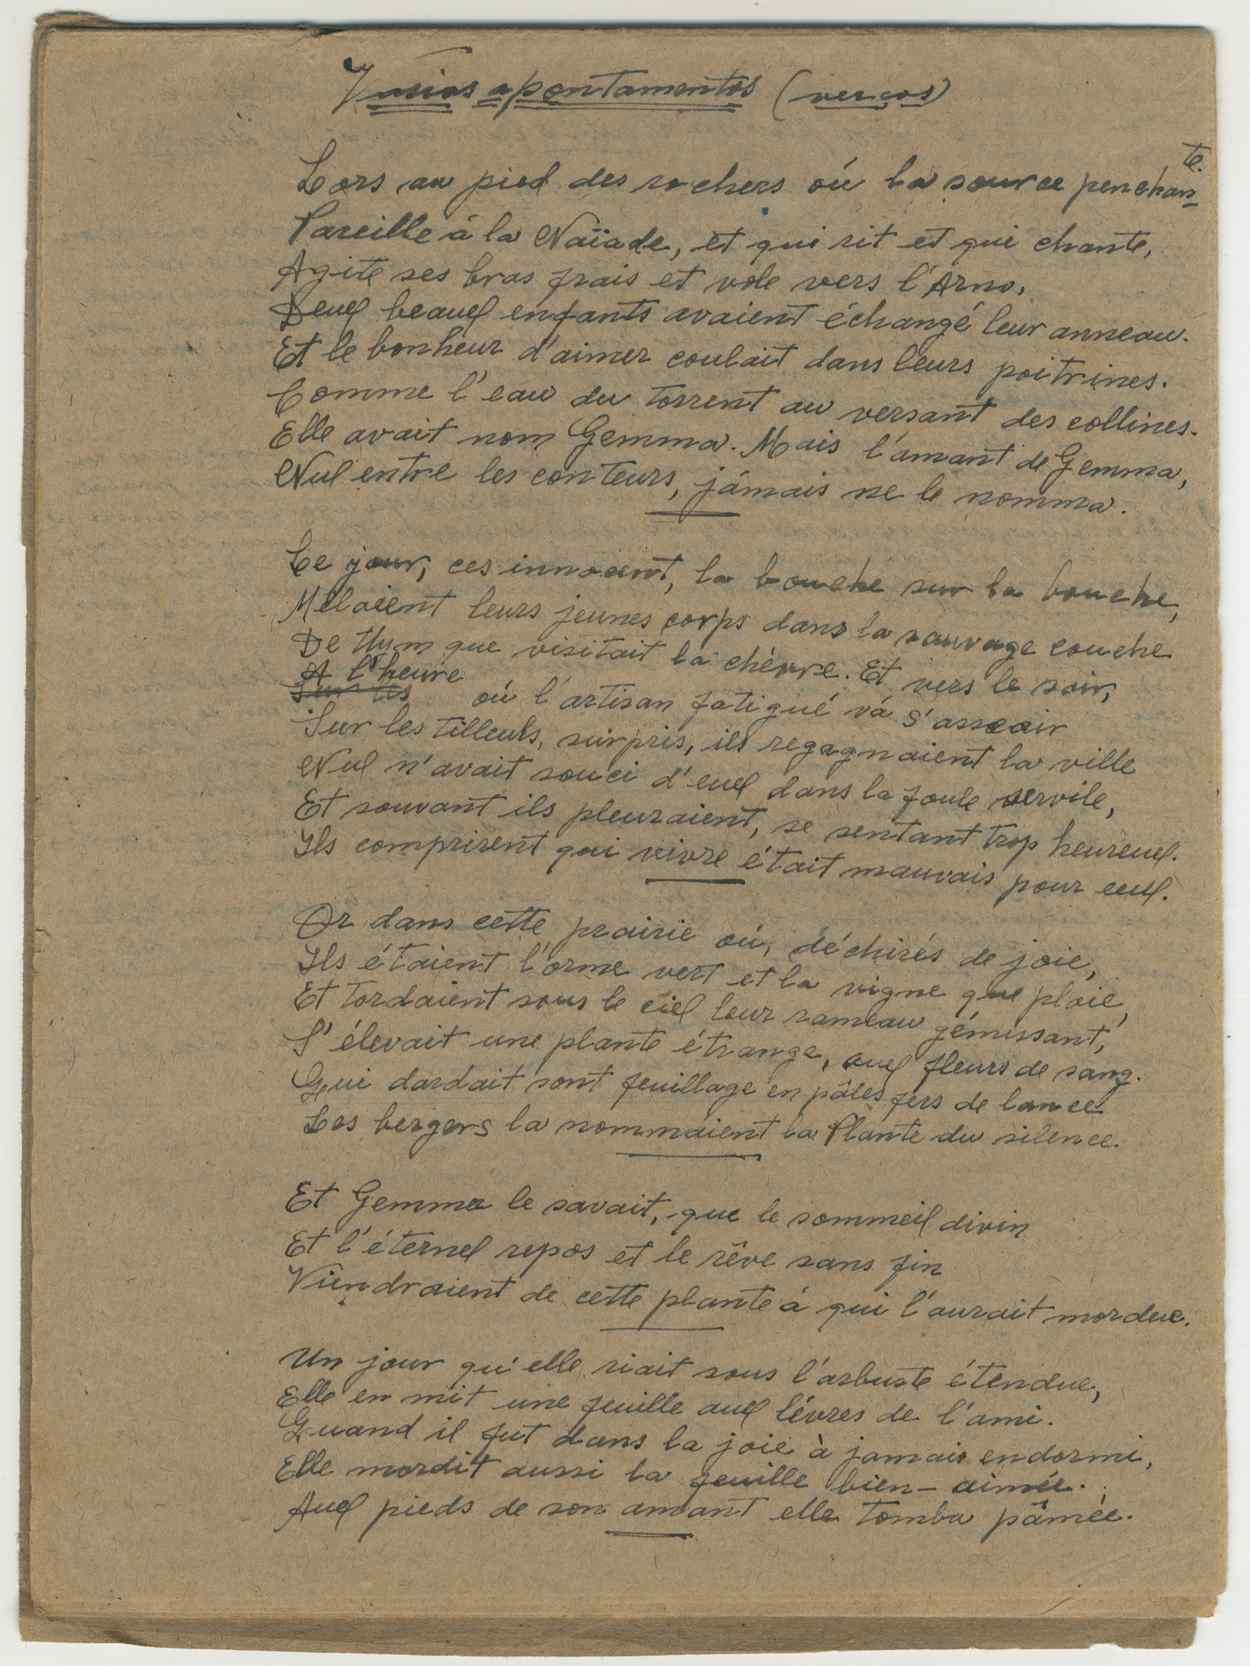 Varias apontamentos (verços)
Lors au pied des rochers oú la source penchan-
te.
Pareille á la Naïade, et qui rit et qui chante,
Agite ses bras frais et vole vers l'Arno,
Deux beaux enfants avaient échangé leur anneau.
Et le bonheur d'aimer coulait dans leurs poitrines.
Comme l'eau du torrent au versant des collines.
Elle avait nom Gemma. Mais l'amant de Gemma,
Nul entre les conteurs, jámais ne le nomma.
Le jour, ces innocent, la bouche sur la bouche,
Mélaient leurs jeunes corps dans la sauvage couche
De thym que visitait la chévre. Et vers le soir,
A l'heure
Sur les oú l'artisan fatigué vá s'asseoir
Sur les tilleuls, surpris, ils regagnaient la ville
Nul n'avait souci d'eux dans la foule servile,
Et souvant ils pleuraient, se sentant trop heureux.
Ils comprirent qui vivre était mauvais pour eux.
Or dans cette prairie oú, déchirés de joie,
Ils étaient l'orme vert et la vigne que ploie,
Et tordaient sous le ciel leur rameau gémissant,
S'élevait une plante étrange, aux fleurs de sang.
Qui dardait sont feuillage en pâles fers de lance.
Les bergers la nommaient la Plante du silence.
Et Gemma le savait, que le sommeil divin
Et l'éternel repos et le rêve sans fin
Viendraient de cette plante á qui l'aurait mordue.
Un jour qu'elle riait sous l'arbuste étendue,
Elle en mit une feuille aux lévres de l'ami.
Quand il fut dans la joie à jamais endormi,
Elle mordit aussi la feuille bien-aimée.
Aux pieds de son amant elle tomba pâmée.